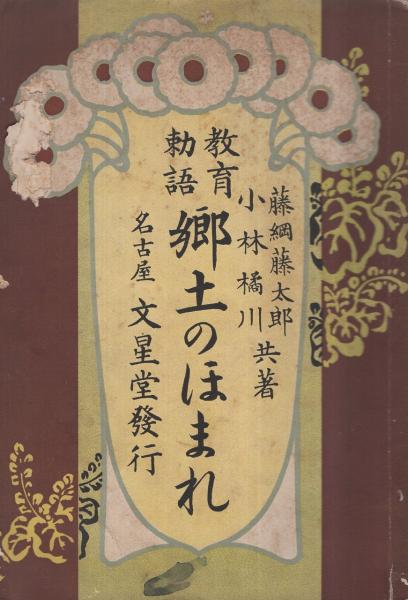 藤綱藤太郎
小林橘川 共著
教育
勅語
郷土のほまれ
名古屋 文星堂發行